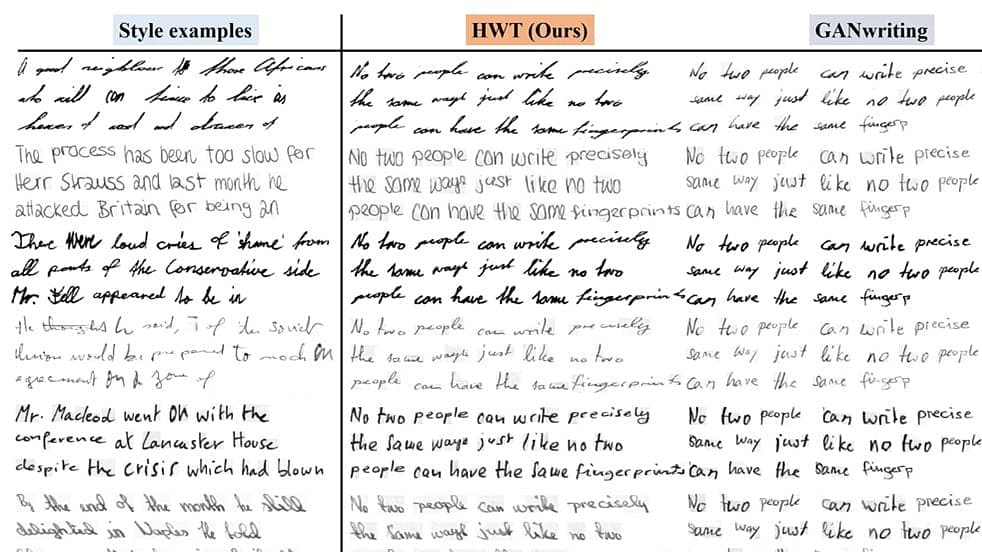 Style examples
HWT (Ours)
GANwriting
A good neighbour to those Africans
who will can to live in
hewers of wood and drawers of
The process has been too slow for
Herr Strauss and last month he
attacked Britain for being an
There were loud cries of 'shame' from
all parts of the Conservative side
Mr. Fell appeared to be in
He thoughts he said, of the Soviet
Union would be prepared to much ON
agreement ON a zone of
Mr. Macleod went ON with the
conference at Lancaster House
despite the crisis which had blown
By the end of the month he still
delighted in Naples he told
No two people can write precisely
the same ways just like no two
people can have the same fingerprints
No two people can write precisely
the same ways just like no two
people can have the same fingerprints
No two people can write precisely
the same ways just like no two
people can have the same fingerprints
No two people can write precisely
the same ways just like no two
people can have the same fingerprints
No two people can write precisely
the same ways just like no two
people can have the same fingerprints
No two people can write precisely
the same ways just like no two
No two people can write precise
same way just like no two people
can have the same fingerp
No two people can write precise
same way just like no two people
can have the same fingerp
No two people can write precise
same way just like no two people
can have the same fingerp
No two people can write precise
same way just like no two people
can have the same fingerp
No two people can write precise
same way just like no two people
can have the same fingerp
No two people can write precise
same way just like no two people